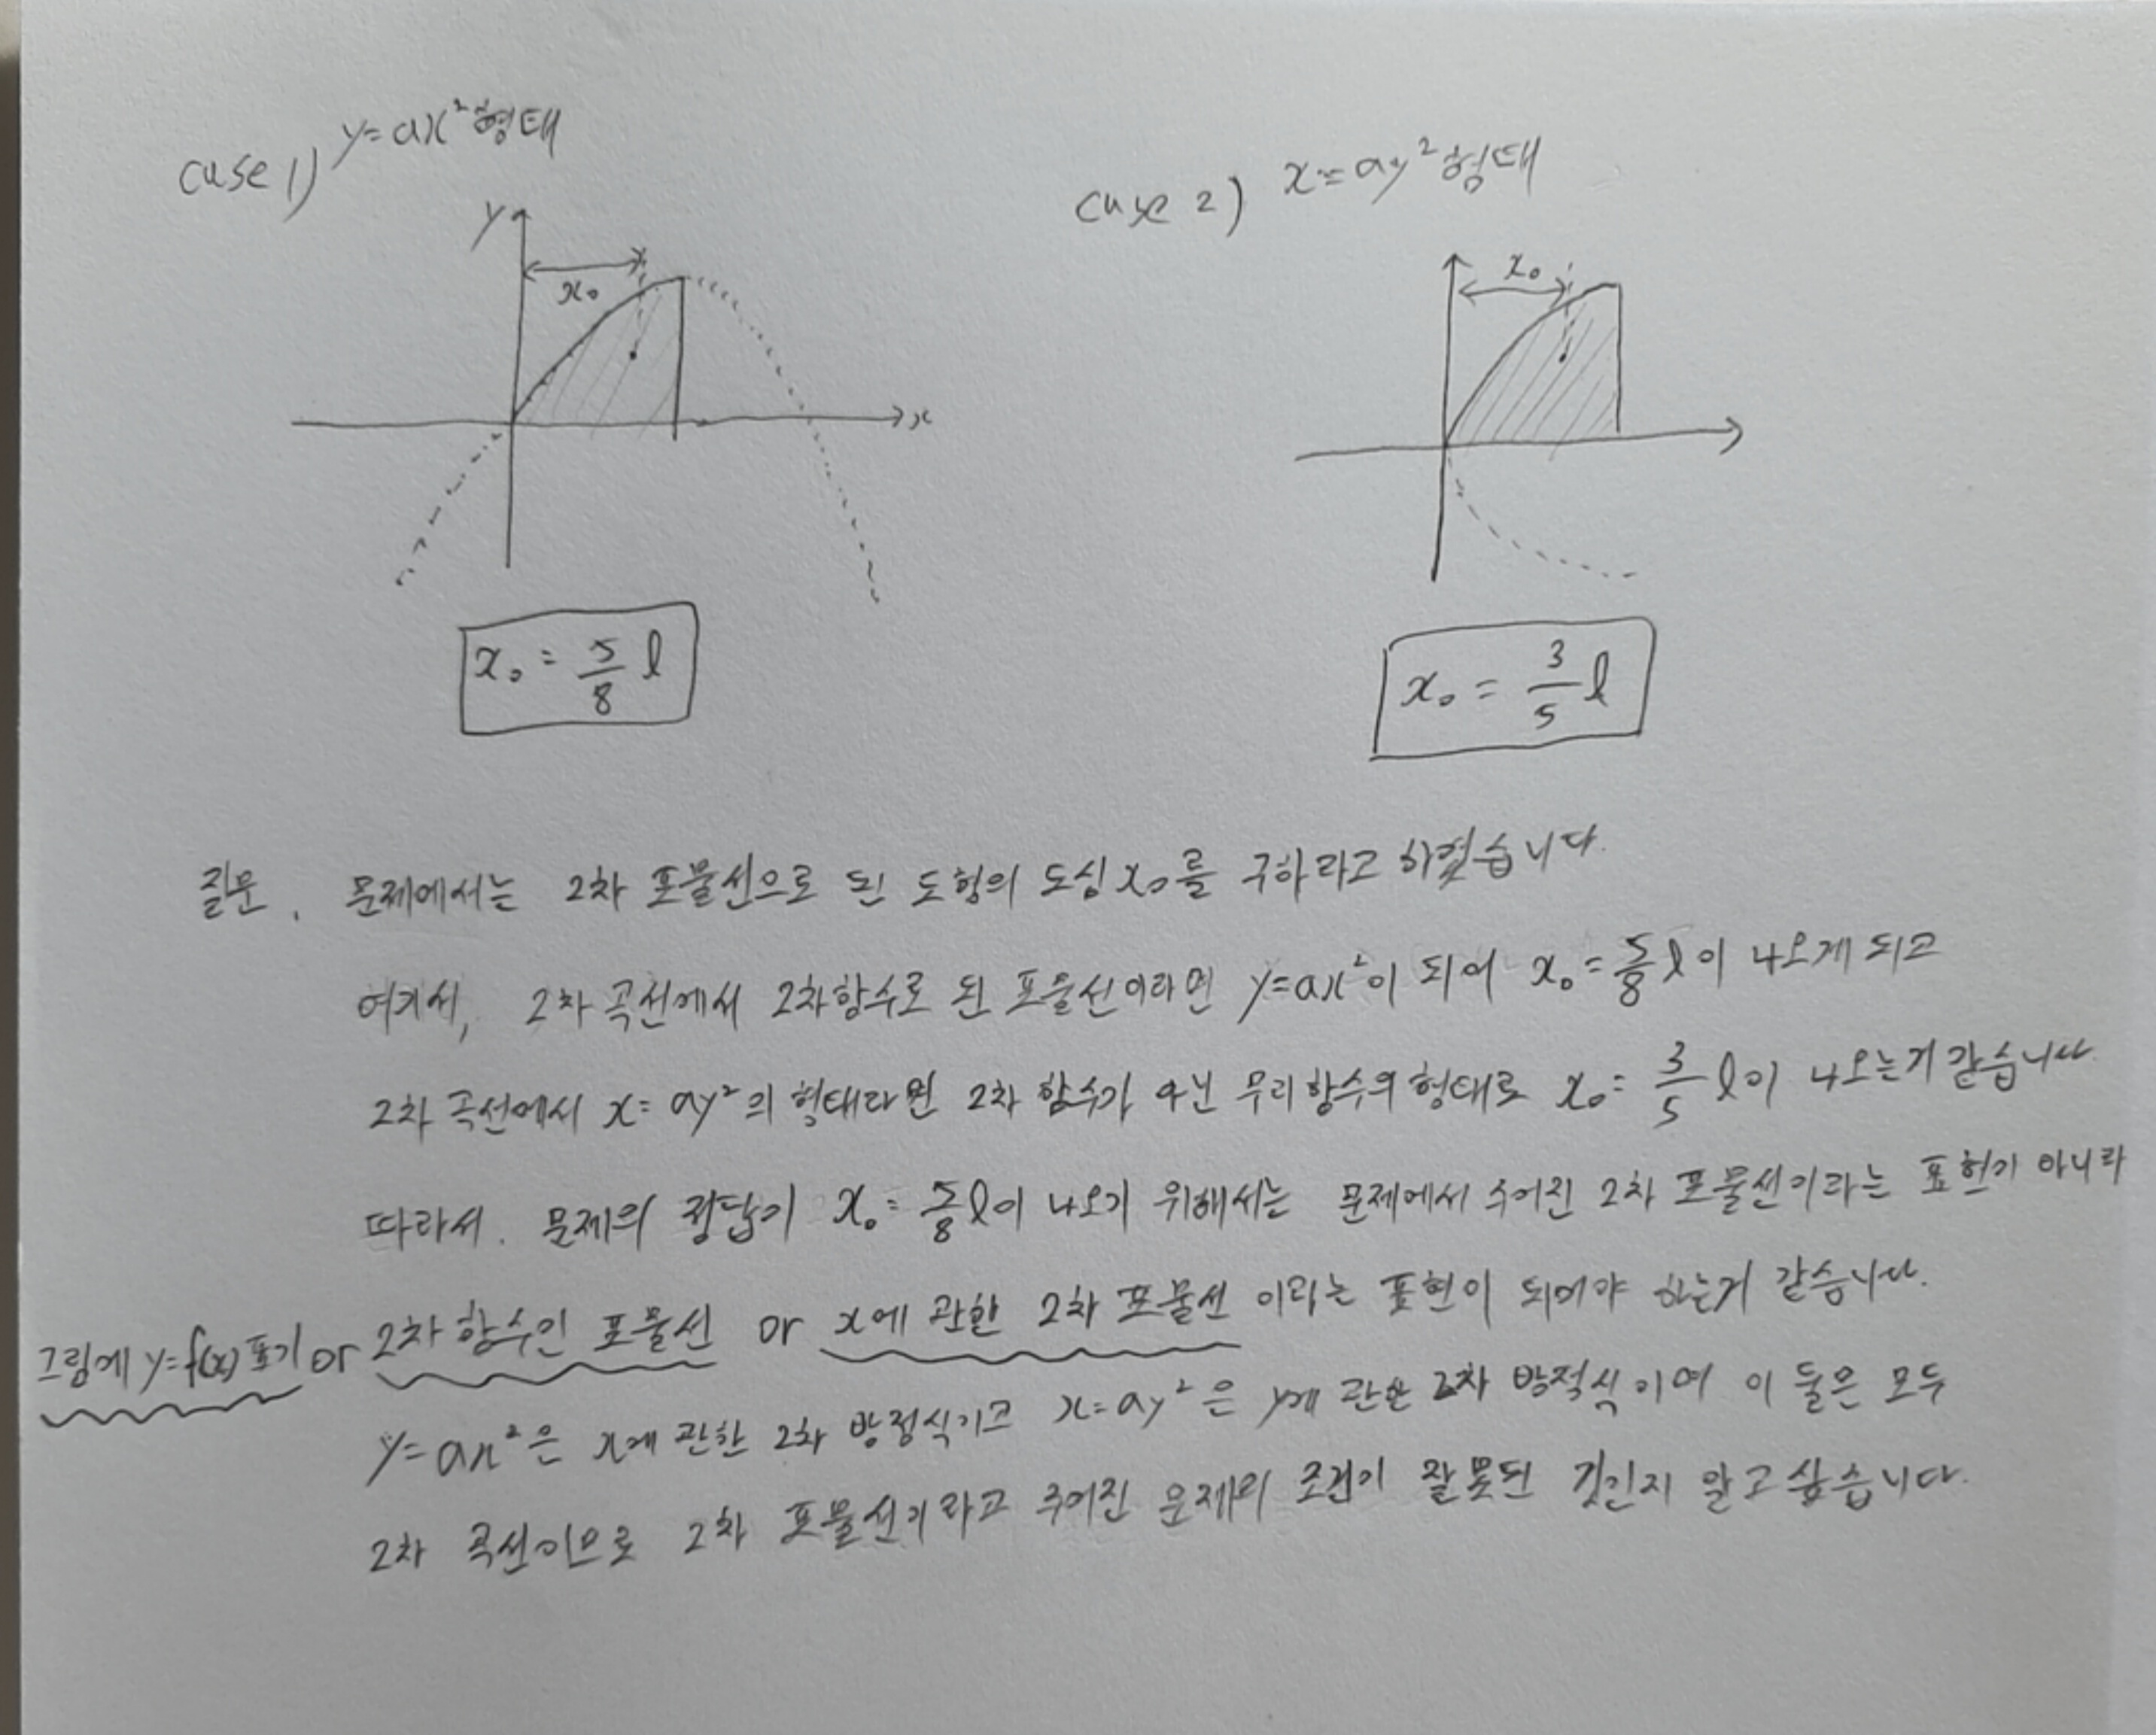 case 1) y=ax²형태
y
x₀
x
x₀ = 5/8 l
case 2) x=ay²형태
x₀
x₀ = 3/5 l
질문. 문제에서는 2차 포물선으로 된 도형의 도심 x₀를 구하라고 하였습니다.
여기서, 2차 곡선에서 2차함수로 된 포물선이라면 y=ax²이 되어 x₀=5/8 l이 나오게 되고
2차 곡선에서 x=ay²의 형태라면 2차 함수가 아닌 무리함수의 형태로 x₀=3/5 l이 나오는거 같습니다.
따라서. 문제의 정답이 x₀=5/8 l이 나오기 위해서는 문제에서 주어진 2차 포물선이라는 표현이 아니라
그림에 y=f(x)표기 or 2차 함수인 포물선 or x에 관한 2차 포물선 이라는 표현이 되어야 하는거 같습니다.
y=ax²은 x에 관한 2차 방정식이고 x=ay²은 y에 관한 2차 방정식이며 이 둘은 모두
2차 곡선이므로 2차 포물선이라고 주어진 문제의 조건이 잘못된 것인지 알고싶습니다.